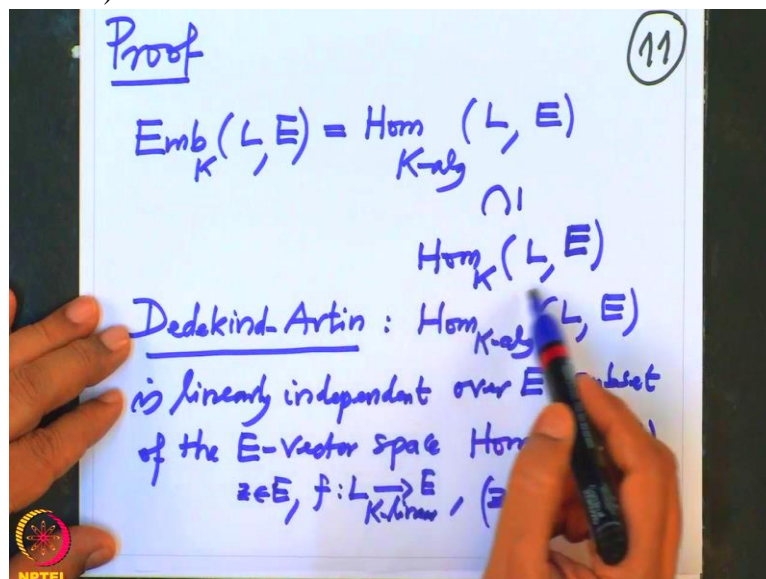 Proof
11
Emb_K (L, E) = Hom_{K-alg} (L, E)
∩|
Hom_K (L, E)
Dedekind-Artin : Hom_{K-alg} (L, E)
is linearly independent over E
of the E-vector space Hom
z∈E, f: L ⟶_{K-linear} E, (z
NPTEL